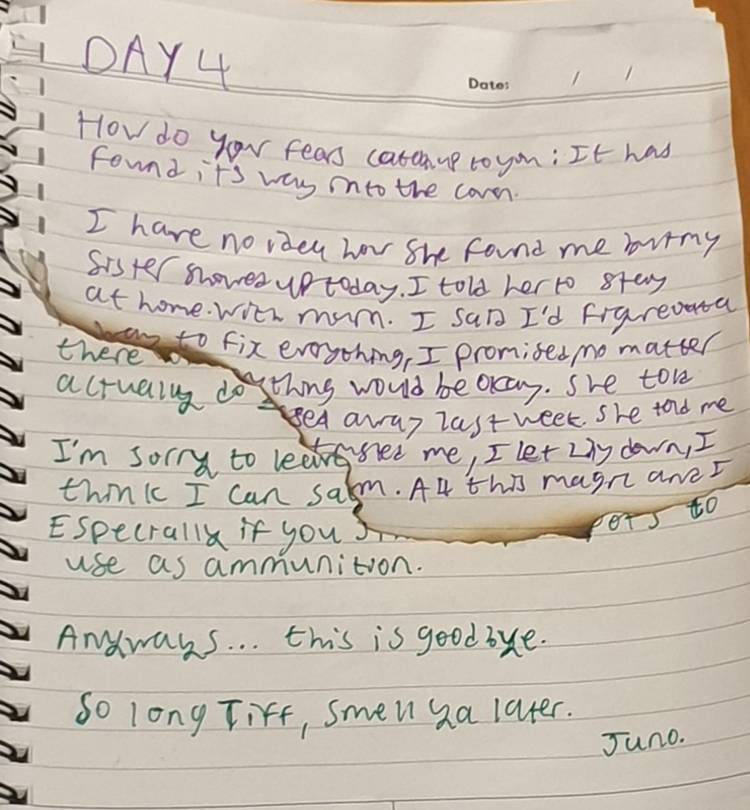 DAY 4
Date: / /
How do your fears catch up to you: It has
found it's way into the coven.
I have no idea how she found me but my
sister showed up today. I told her to stay
at home with mum. I said I'd figure out a
way to fix everything, I promised, no matter
there
thing would be okay. She told
actually do
sed away last week. She told me
trusted me, I let Lily down, I
I'm sorry to leave
m. All this magic and I
think I can sa
Especially if you
ets to
use as ammunition.
Anyways... this is goodbye.
So long Tiff, smell ya later.
Juno.